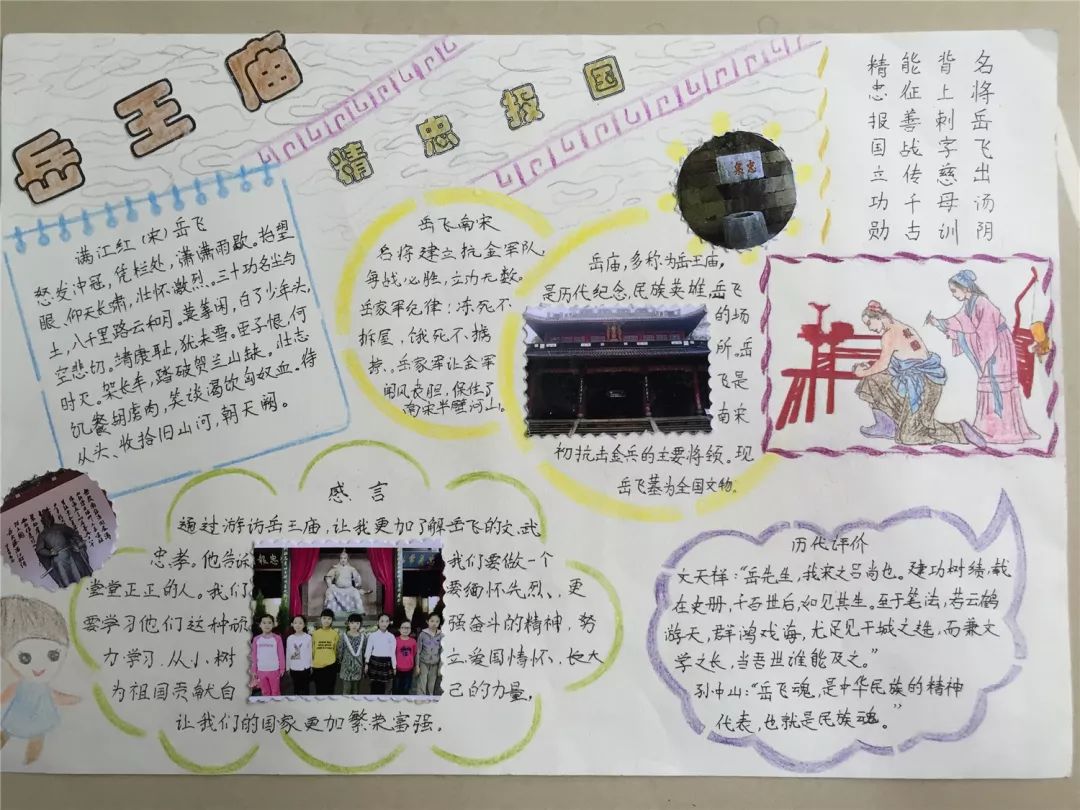 岳王庙
精忠报国
名将岳飞出汤阴
背上刺字慈母训
能征善战传千古
精忠报国立功勋
满江红（宋）岳飞
怒发冲冠，凭栏处，潇潇雨歇。抬望
眼、仰天长肃，壮怀激烈。三十功名尘与
土，八千里路云和月。莫等闲，白了少年头，
空悲切。靖康耻，犹未雪。臣子恨，何
时灭。架长车，踏破贺兰山缺。壮志
饥餐胡虏肉，笑谈渴饮匈奴血。待
从头、收拾旧山河，朝天阙。
岳飞南宋
名将建立抗金军队，
每战必胜，立功无数。
岳家军纪律：冻死不
拆屋，饿死不掳
掠，岳家军让金军
闻风丧胆，保住了
南宋半壁河山。
岳庙，多称为岳王庙，
是历代纪念，民族英雄，岳飞
的场
所。岳
飞是
南宋
初抗击金兵的主要将领。现
岳飞墓为全国文物。
忠
感言
通过游访岳王庙，让我更加了解岳飞的文，武
忠孝。他告诉我们要做一个
堂堂正正的人。我们要缅怀先烈、更
要学习他们这种顽强奋斗的精神，努
力学习，从小树立爱国情怀、长大
为祖国贡献自己的力量，
让我们的国家更加繁荣富强。
历代评价
文天样：“岳先生，我宋之吕尚也。建功树绩，载
在史册，千百世后，如见其生。至于笔法，若云鹤
游天，群鸿戏海，尤足见干城之选，而兼文
学之长，当吾世谁能及之。”
孙中山：“岳飞魂，是中华民族的精神
代表，也就是民族魂。”